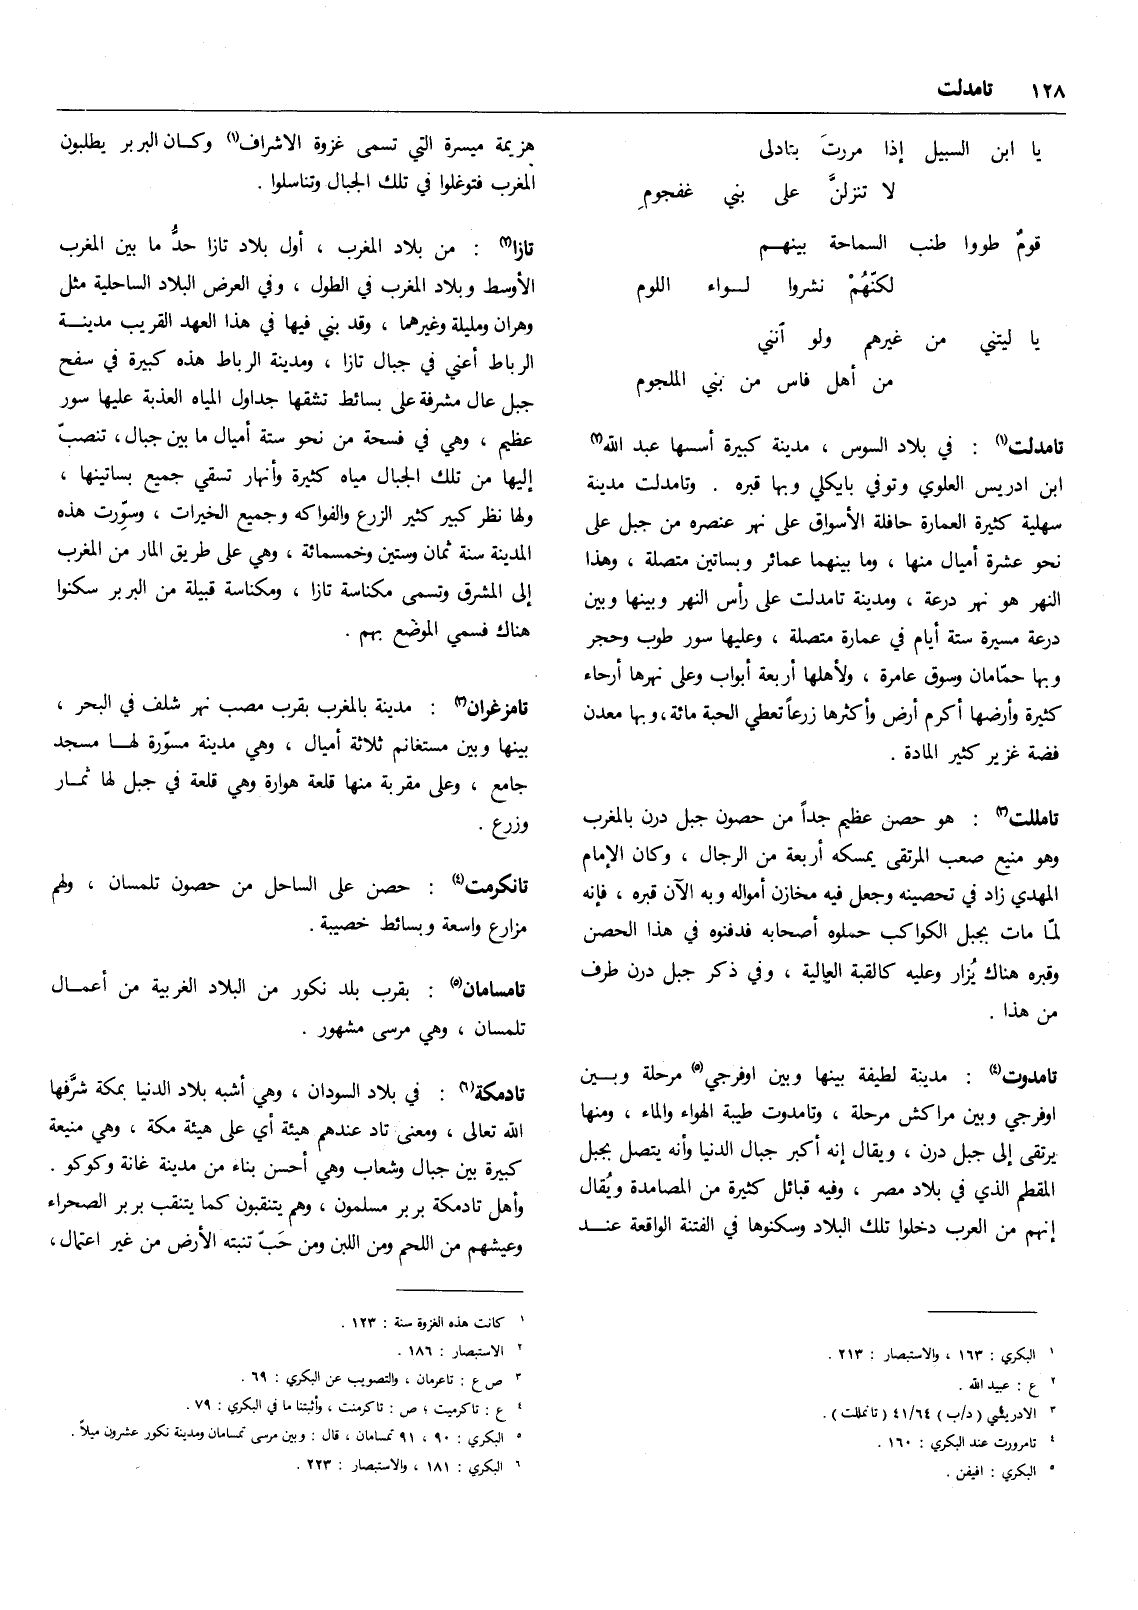 ١٢٨ تامدلت
يا ابن السبيل إذا مررتَ بتادلى
لا تنزلنَّ على بني غفجومِ
قومٌ طووا طنب السماحة بينهـم
لكنّهُمْ نشروا لـواء اللوم
يا ليتني من غيرهم ولو أنني
من أهل فاس من بني الملجوم
تامدلت(١) : في بلاد السوس ، مدينة كبيرة أسسها عبد الله(٢)
ابن ادريس العلوي وتوفي بايكلي وبها قبره . وتامدلت مدينة
سهلية كثيرة العمارة حافلة الأسواق على نهر عنصره من جبل على
نحو عشرة أميال منها ، وما بينهما عمائر وبساتين متصلة ، وهذا
النهر هو نهر درعة ، ومدينة تامدلت على رأس النهر وبينها وبين
درعة مسيرة ستة أيام في عمارة متصلة ، وعليها سور طوب وحجر
وبها حمّامان وسوق عامرة ، ولأهلها أربعة أبواب وعلى نهرها أرحاء
كثيرة وأرضها أكرم أرض وأكثرها زرعاً تعطي الحبة مائة، وبها معدن
فضة غزير كثير المادة .
تامللت(٣) : هو حصن عظيم جداً من حصون جبل درن بالمغرب
وهو منيع صعب المرتقى يمسكه أربعة من الرجال ، وكان الإمام
المهدي زاد في تحصينه وجعل فيه مخازن أمواله وبه الآن قبره ، فإنه
لمّا مات بجبل الكواكب حملوه أصحابه فدفنوه في هذا الحصن
وقبره هناك يُزار وعليه كالقبة العالية ، وفي ذكر جبل درن طرف
من هذا .
تامدوت(٤) : مدينة لطيفة بينها وبين اوفرجي(٥) مرحلة وبـين
اوفرجي وبين مراكش مرحلة ، وتامدوت طيبة الهواء والماء ، ومنها
يرتقى إلى جبل درن ، ويقال إنه أكبر جبال الدنيا وأنه يتصل بجبل
المقطم الذي في بلاد مصر ، وفيه قبائل كثيرة من المصامدة ويُقال
إنهم من العرب دخلوا تلك البلاد وسكنوها في الفتنة الواقعة عنـد
١ البكري : ١٦٣ ، والاستبصار : ٢١٣ .
٢ ع : عبيد الله .
٣ الادريسي ( د/ب ) ٤١/٦٤ ( تانمللت ) .
٤ تامرورت عند البكري : ١٦٠ .
٥ البكري : افيفن .
هزيمة ميسرة التي تسمى غزوة الاشراف(١) وكـان البربر يطلبون
المغرب فتوغلوا في تلك الجبال وتناسلوا .
تازا(٢) : من بلاد المغرب ، أول بلاد تازا حدُّ ما بين المغرب
الأوسط وبلاد المغرب في الطول ، وفي العرض البلاد الساحلية مثل
وهران ومليلة وغيرهما ، وقد بني فيها في هذا العهد القريب مدينـة
الرباط أعني في جبال تازا ، ومدينة الرباط هذه كبيرة في سفح
جبل عال مشرفة على بسائط تشقها جداول المياه العذبة عليها سور
عظيم ، وهي في فسحة من نحو ستة أميال ما بين جبال ، تنصبّ
إليها من تلك الجبال مياه كثيرة وأنهار تسقي جميع بساتينها ،
ولها نظر كبير كثير الزرع والفواكه وجميع الخيرات ، وسوّرت هذه
المدينة سنة ثمان وستين وخمسمائة ، وهي على طريق المار من المغرب
إلى المشرق وتسمى مكناسة تازا ، ومكناسة قبيلة من البربر سكنوا
هناك فسمي الموضع بهم .
تامزغران(٣) : مدينة بالمغرب بقرب مصب نهر شلف في البحر ،
بينها وبين مستغانم ثلاثة أميال ، وهي مدينة مسوّرة لهـا مسجد
جامع ، وعلى مقربة منها قلعة هوارة وهي قلعة في جبل لها ثمـار
وزرع .
تانكرمت(٤) : حصن على الساحل من حصون تلمسان ، ولهم
مزارع واسعة وبسائط خصيبة .
تامسامان(٥) : بقرب بلد نكور من البلاد الغربية من أعمـال
تلمسان ، وهي مرسى مشهور .
تادمكة(٦) : في بلاد السودان ، وهي أشبه بلاد الدنيا بمكة شرَّفها
الله تعالى ، ومعنى تاد عندهم هيئة أي على هيئة مكة ، وهي منيعة
كبيرة بين جبال وشعاب وهي أحسن بناء من مدينة غانة وكوكو .
وأهل تادمكة بربر مسلمون ، وهم يتنقبون كما يتنقب بربر الصحراء
وعيشهم من اللحم ومن اللبن ومن حَبّ تنبته الأرض من غير اعتمال ،
١ كانت هذه الغزوة سنة : ١٢٣ .
٢ الاستبصار : ١٨٦ .
٣ ص ع : تاعرمان ، والتصويب عن البكري : ٦٩ .
٤ ع : تاكرميت ؛ ص : تاكرمنت ، وأثبتنا ما في البكري : ٧٩ .
٥ البكري : ٩٠ ، ٩١ تمسامان ، قال : وبين مرسى تمسامان ومدينة نكور عشرون ميلاً .
٦ البكري : ١٨١ ، والاستبصار : ٢٢٣ .